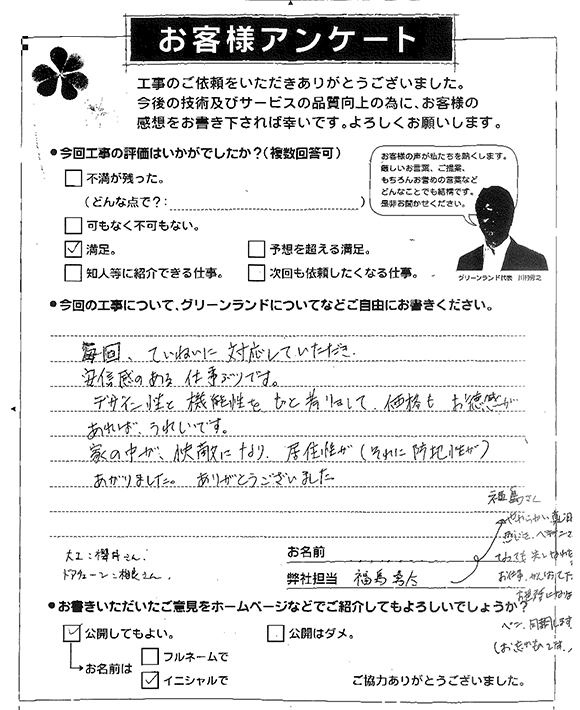 お客様アンケート
工事のご依頼をいただきありがとうございました。
今後の技術及びサービスの品質向上の為に、お客様の
感想をお書き下されば幸いです。よろしくお願いします。
●今回工事の評価はいかがでしたか?(複数回答可)
不満が残った。
(どんな点で?: )
可もなく不可もない。
満足。
予想を超える満足。
知人等に紹介できる仕事。
次回も依頼したくなる仕事。
お客様の声が私たちを熱くします。
厳しいお言葉、ご提案、
もちろんお誉めの言葉など
どんなことでも結構です。
是非お聞かせください。
グリーンランド代表
●今回の工事について、グリーンランドについてなどご自由にお書きください。
毎回、ていねいに対応していただき、
安信感のある仕事ぶりです。
デザイン性と機能性を、価格もお徳感が
あれば、うれしいです。
家の中が、快適になり、居住性が(それに防犯性が)
あがりました。ありがとうございました
大工:櫻井さん.
お名前
弊社担当 福島
福島さん
●お書きいただいたご意見をホームページなどでご紹介してもよろしいでしょうか?
公開してもよい。
公開はダメ。
お名前は
フルネームで
イニシャルで
ご協力ありがとうございました。